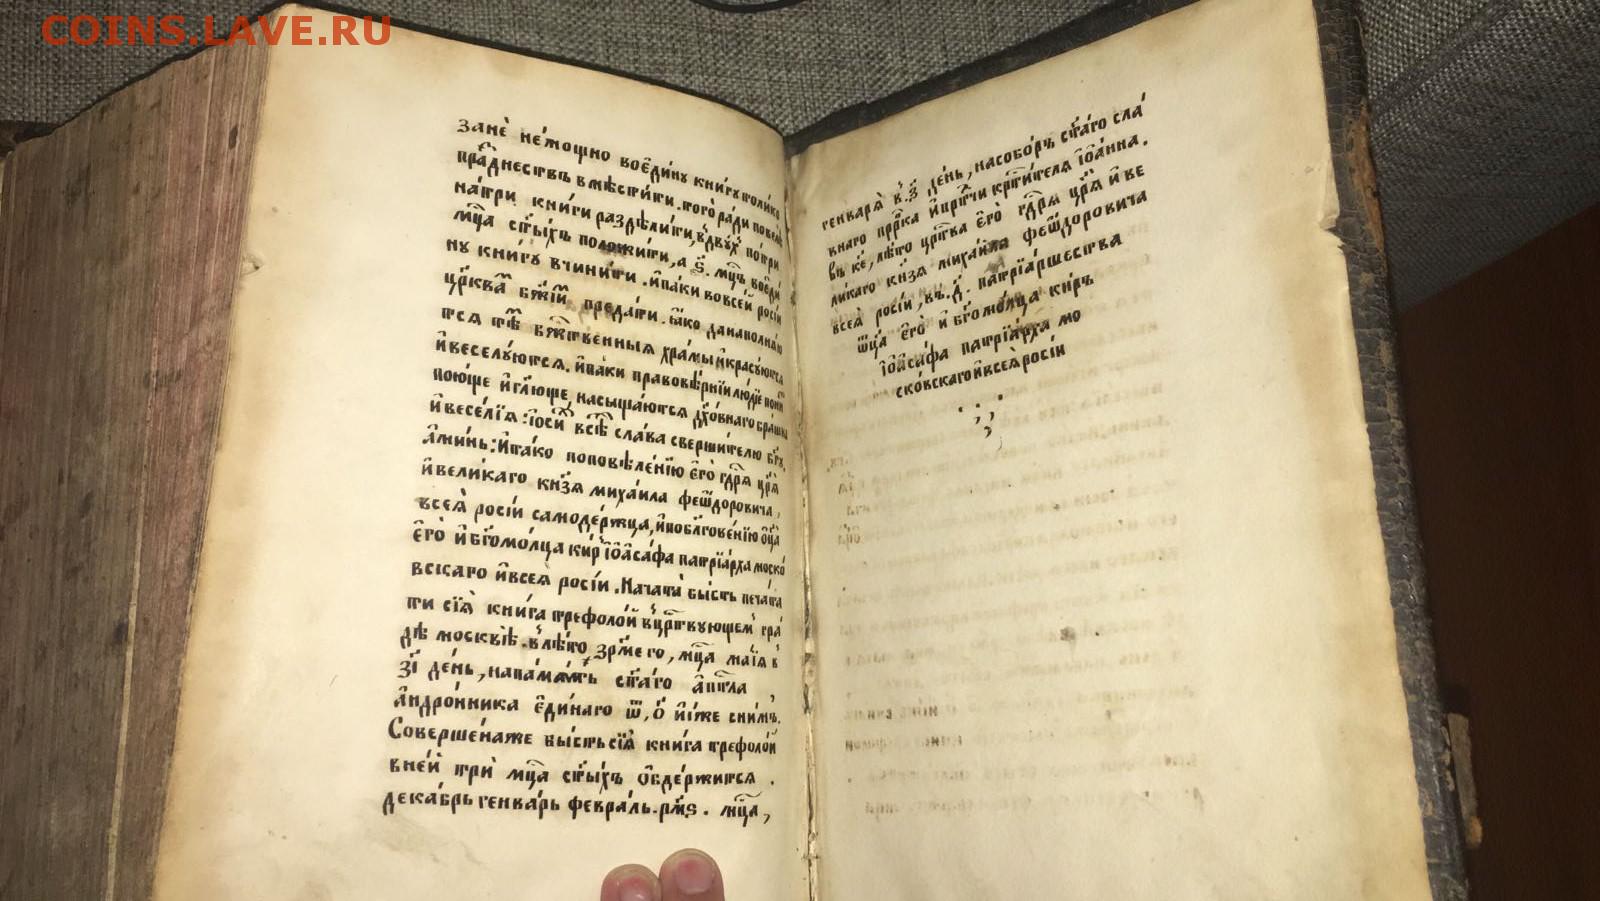 COINS.LAVE.RU
занѐ не́мощно воеди́ну кни́гу толи́ко
пра́днєствъ вмѣсти́ти. того̀ ра́ди повелѣ
на́три кни́ги раздѣли́ти, вдвꙋ́хъ по́ три
мц҃а ст҃ы́хъ положи́ти, а ѕ҃. мцъ воеди́
ну кни́гу вчини́ти. и҆па́ки вовсе́й росі́и
цр҃ква́м бж҃іим преда́ти. ꙗ҆́ко да напо́лнѧю
тсѧ тѣ́ бж҃твенныѧ хра́мы и҆красу́ютсѧ
и҆веселу́ютсѧ. и҆па́ки правовѣ́рніи лю́діе
пою́ще и҆гл҃юще, насыща́ютсѧ дх҃о́внаго бра́шна
и҆весе́лїѧ: ѡ҆си́х всѣ́х сла́ва сверши́телю бг҃у,
а҆ми́нь: и҆та́ко поповѣле́нїю е҆го̀ гдр҃ѧ цр҃ѧ
и҆вели́каго кнѕ҃ѧ миха́ила феѡ́доровича,
всеѧ̀ росі́и самоде́ржца, и҆поблг҃ове́нїю ѻ҆ц҃а̀
е҆го̀ и҆ бг҃омо́лца ки́р і҆ѡ҆аса́фа патрїа́рха моско́
вскаго и҆всеѧ̀ росі́и. Нача́та бы́сть печа́та
ти сїѧ̀ кни́га трефоло́й вцр҃твующем гра́
дѣ москвѣ̀. влѣ́то, зр҃ме го, мц҃а ма́їѧ в
зı҃ де́нь, напа́мѧть ст҃а́го а҆пт҃ла
а҆ндро́нника е҆ди́наго ѿ, о҃ и҆и́же сни́мъ.
Соверше́наже бы́сть сїѧ̀ кни́га трефоло́й
вне́й трѝ мц҃а ст҃ы́хъ ѻ҆бдержи́тсѧ.
дека́брь генва́рь февра́ль. рм҃ѕ. мц҃а,
генварѧ̀ в. з҃ де́нь, насобо́ръ ст҃а́го сла́
внаго прⷪ҇рка и҆прⷣтчи крⷭ҇ти́телѧ і҆ѡ҆а́нна.
въ к҃е, лѣ́то црⷭ҇тва е҆го̀ гдр҃ѧ цр҃ѧ и҆ ве
ли́каго кнѕ҃ѧ миха́ила феѡ́доровича
всеѧ̀ росі́и, въ. д҃. патрїа́ршества
ѻ҆ц҃а̀ е҆го̀ и҆ бг҃омо́лца ки́ръ
і҆ѡ҆аса́фа патрїа́рха мо
ско́вскаго и҆всеѧ̀ росі́и